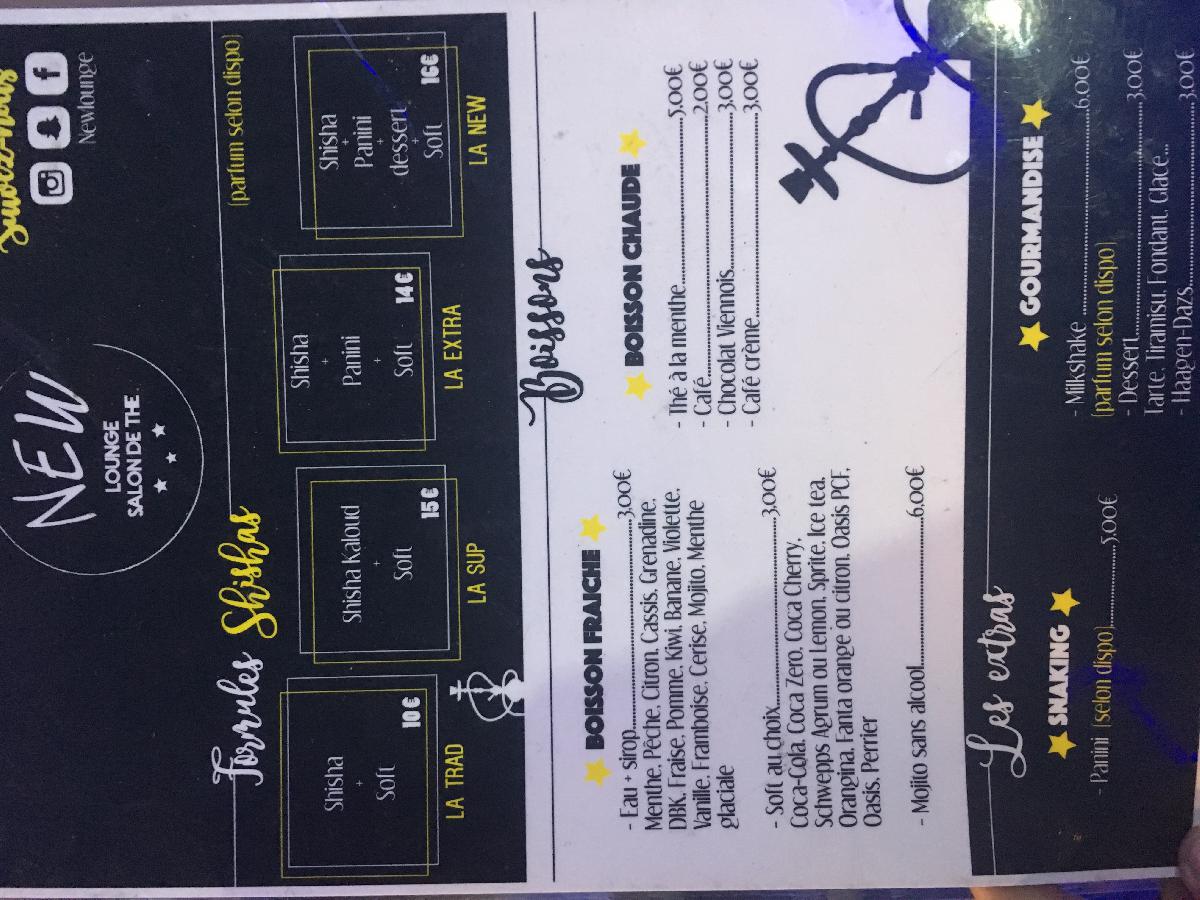 NEW
LOUNGE
SALON DE THE.
Suivez-nous
Newlounge
Formules Shishas
(parfum selon dispo)
Shisha
+
Soft
10€
LA TRAD
Shisha Kaloud
+
Soft
15€
LA SUP
Shisha
+
Panini
+
Soft
14€
LA EXTRA
Shisha
+
Panini
+
dessert
+
Soft
16€
LA NEW
Boissons
BOISSON FRAICHE
- Eau + sirop............3,00€
Menthe, Pêche, Citron, Cassis, Grenadine,
DBK, Fraise, Pomme, Kiwi, Banane, Violette,
Vanille, Framboise, Cerise, Mojito, Menthe
glaciale
- Soft au choix............3,00€
Coca-Cola, Coca Zero, Coca Cherry,
Schwepps Agrum ou Lemon, Sprite, Ice tea,
Orangina, Fanta orange ou citron, Oasis PCF,
Oasis, Perrier
- Mojito sans alcool............6,00€
BOISSON CHAUDE
- Thé à la menthe............5,00€
- Café............2,00€
- Chocolat Viennois............3,00€
- Café crème............3,00€
Les extras
SNAKING
- Panini (selon dispo)............5,00€
GOURMANDISE
- Milkshake ............6,00€
(parfum selon dispo)
- Dessert............3,00€
Tarte, Tiramisu, Fondant, Glace...
- Haagen-Dazs............3,00€